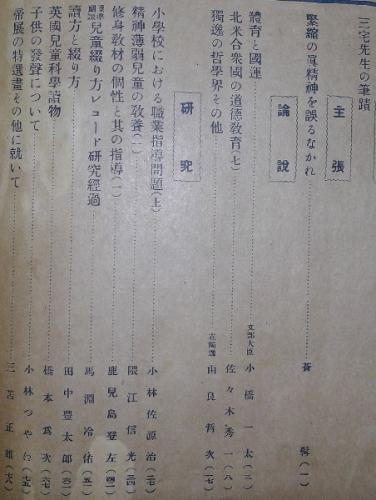 三宅先生の筆蹟
主張
緊縮の眞精神を誤るなかれ 蒼 (一)
論說
體育と國運 文部大臣 小橋一太(三)
北米合衆國の道德敎育(七) 佐々木秀一(八)
獨逸の哲學界その他 在獨逸 由良哲次(一七)
研究
小學校における職業指導問題(上) 小林佐源治(二七)
精神薄弱兒童の敎養(一) 隈江信光(三四)
修身敎材の個性と其の指導(一) 鹿兒島登左(四二)
兒童綴り方レコード研究經過 馬淵冷佑(五一)
讀方と綴り方 田中豊太郎(六一)
英國兒童科學讀物 橋本爲次(六七)
子供の發聲について 小林つやえ(七五)
帝展の特選畫その他に就いて 三苫正雄(七八)